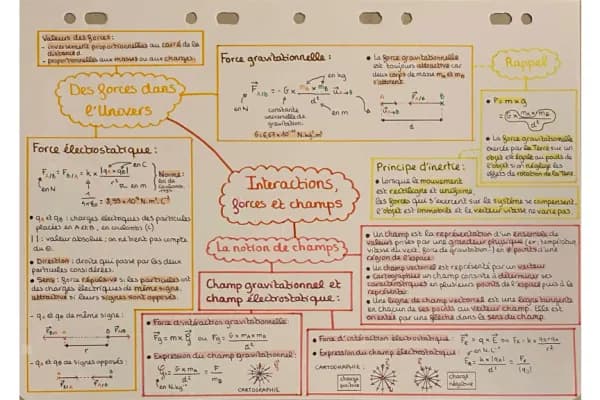 Valeurs des forces:
- inversement proportionnelles au carré de la
distance d
- proportionnelles aux masses ou aux charges.
Des forces dans
l'Univers
Force gravitationnelle:
F A/B = - G x mA x mB / d²
en N
en kg
en m
constante
universelle de
gravitation:
• La force gravitationnelle
est toujours attractive car
deux corps de masse mA et mB
s'attirent
Rappel
• P = m x g
• La force gravitationnelle
exercée par la Terre sur un
objet est égale au poids de
l'objet si on néglige les
effets de rotation de la Terre.
Force électrostatique:
en N
en C
en m
Norme:
loi de
Coulomb
• qA et qB : charges électriques des particules
placées en A et B, en coulombs (C)
| | : valeur absolue; on ne tient pas compte
du
• Direction: droite qui passe par les deux
particules considérées.
• Sens: force répulsive si les particules ont
des charges électriques de même signe,
attractive si leurs signes sont opposés.
- qA et qB de même signe:
- qA et qB de signes opposés:
Interactions,
forces et champs
Principe d'inertie:
• Lorsque le mouvement
est rectiligne et uniforme,
les forces qui s'exercent sur le système se compensent,
l'objet est immobile et le vecteur vitesse ne varie pas.
La notion de champs
• Un champ est la représentation d'un ensemble de
valeurs prises par une grandeur physique (ex: température,
vitesse du vent, force de gravitation) en # points d'une
région de l'espace.
• Un champ vectoriel est représenté par un vecteur
• Cartographier un champ consiste à déterminer ses
caractéristiques en plusieurs points de l'espace puis à le
représenter.
• Une ligne de champ vectoriel est une ligne tangente
en chacun de ses points au vecteur champ. Elle est
orientée par une flèche dans le sens du champ.
Champ gravitationnel et
champ électrostatique:
• Force d'interaction gravitationnelle
ou
• Expression du champ gravitationnel
en N.kg⁻¹
CARTOGRAPHIE
• Force d'interaction électrostatique
ou
• Expression du champ électrostatique
en N.C⁻¹
CARTOGRAPHIE:
charge
positive
charge
négative